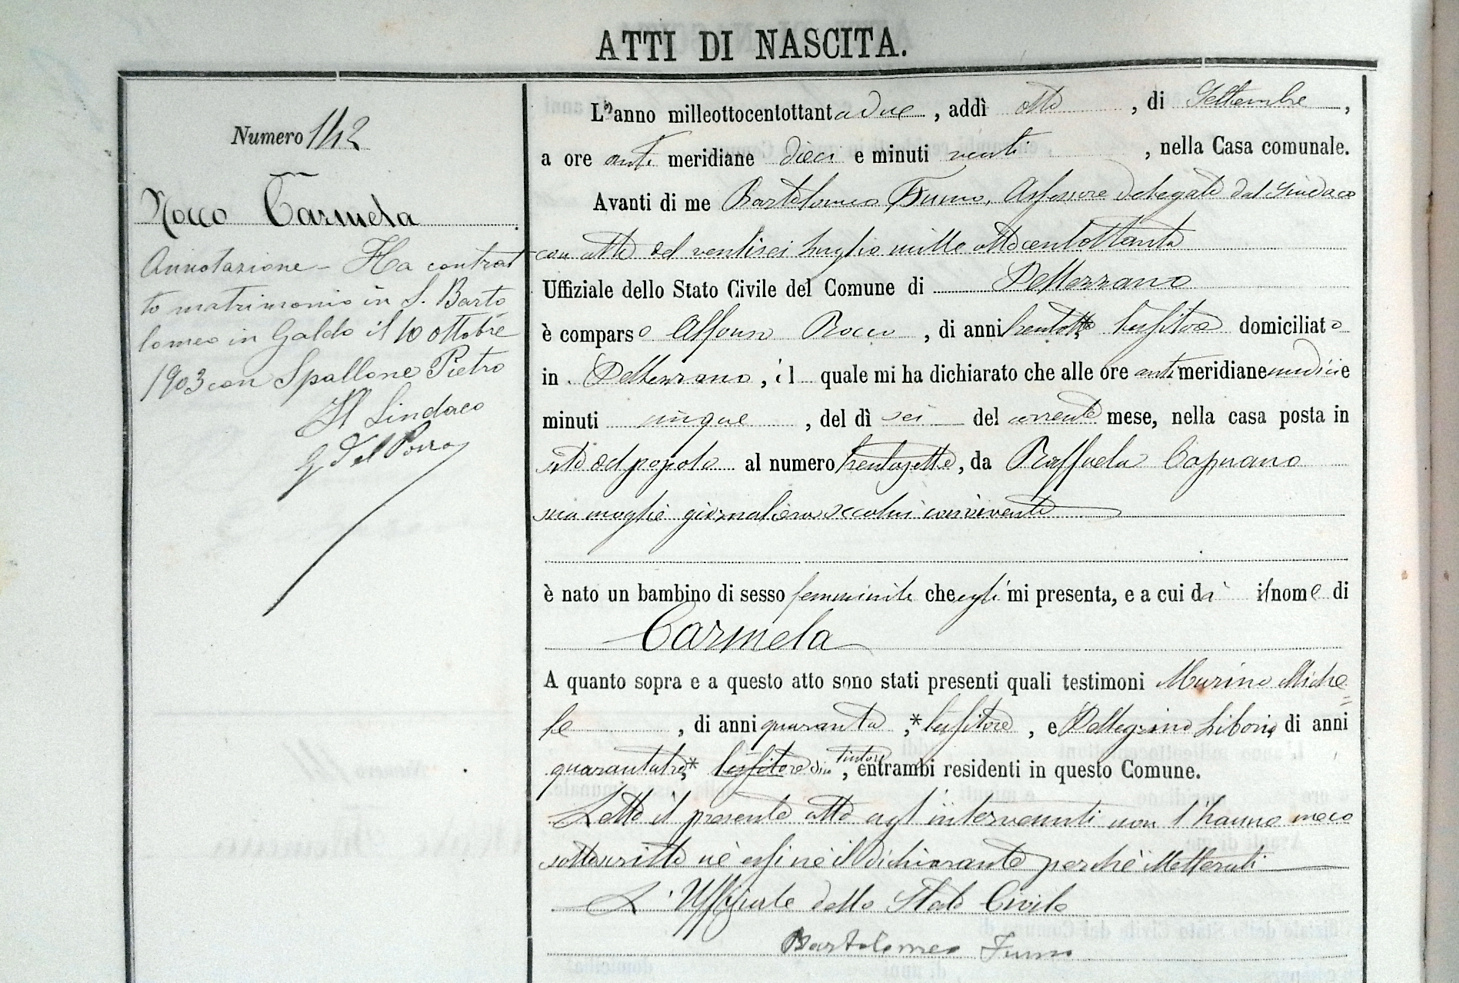 ATTI DI NASCITA.
Numero 142
Rocco Carmela
Annotazione - Ha contrat
to matrimonio in S. Barto
lomeo in Galdo il 10 ottobre
1903 con Spallone Pietro
Il Sindaco
L'anno milleottocentottantadue, addì otto, di Settembre,
a ore anti meridiane dieci e minuti venti, nella Casa comunale.
Avanti di me Bartolomeo Fumo, Assessore delegato dal Sindaco
con atto del ventisei luglio mille ottocentottanta
Uffiziale dello Stato Civile del Comune di Pellezzano
è comparso Alfonso Rocco, di anni trentotto, tessitore domiciliato
in Pellezzano, il quale mi ha dichiarato che alle ore antimeridiane undici e
minuti cinque, del dì sei del corrente mese, nella casa posta in
via del popolo al numero trentasette, da Raffaela Capuano
sua moglie giornaliera seco lui convivente
è nato un bambino di sesso femminile che egli mi presenta, e a cui dà il nome di
Carmela
A quanto sopra e a questo atto sono stati presenti quali testimoni Murino Miche=
le, di anni quaranta,* tessitore, e Pellegrino Liborio di anni
quarantatre,* tessitore dico tintore, entrambi residenti in questo Comune.
Letto il presente atto agl'intervenuti non l'hanno meco
sottoscritto nè essi nè il dichiarante perchè illetterati
L'Uffiziale dello Stato Civile
Bartolomeo Fumo